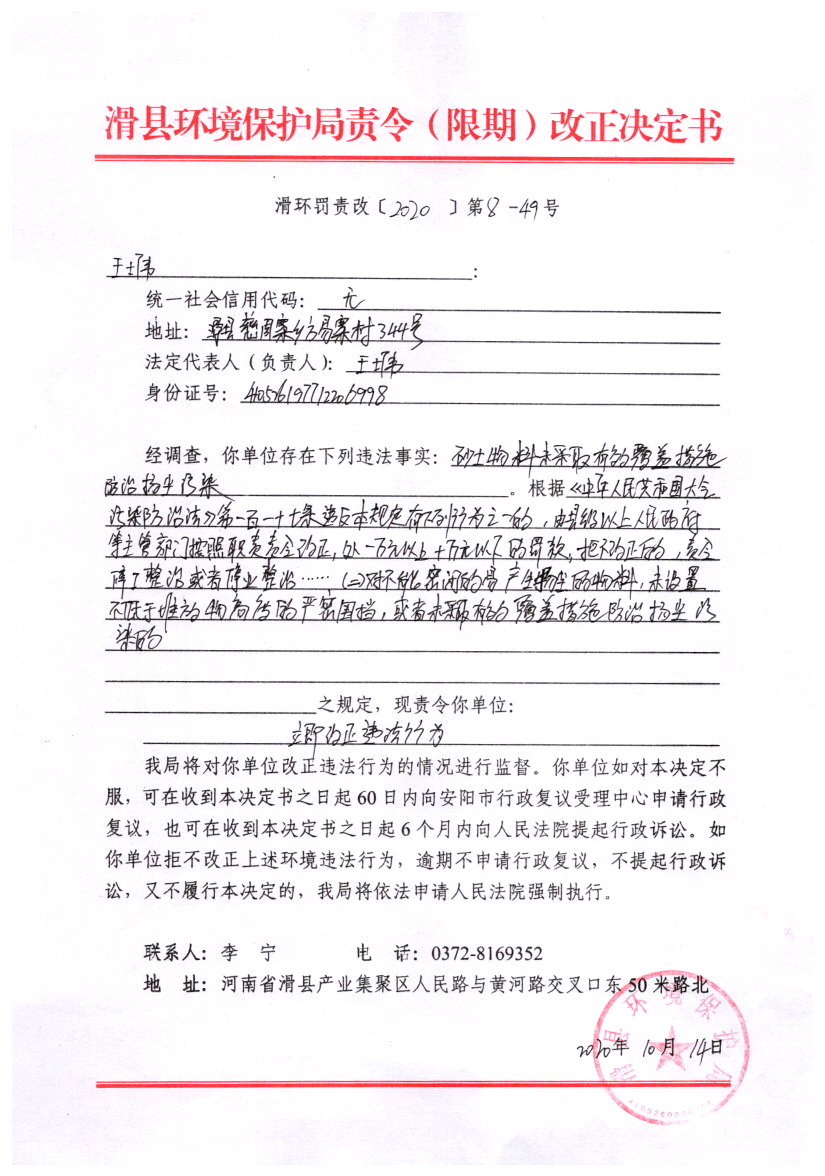 滑县环境保护局责令（限期）改正决定书
滑环罚责改〔2020 〕第8-49号
王士伟：
统一社会信用代码：无
地址：滑县慈周寨乡方易寨村344号
法定代表人（负责人）：王士伟
身份证号：410526197712206998
经调查，你单位存在下列违法事实：砂土物料未采取有效覆盖措施
防治扬尘污染。根据《中华人民共和国大气
污染防治法》第一百一十七条违反本规定有下列行为之一的，由县级以上人民政府
等主管部门按照职责责令改正，处一万元以上十万元以下的罚款，拒不改正的，责令
停工整治或者停业整治……（二）对不能密闭的易产生扬尘的物料，未设置
不低于堆放物高度的严密围挡，或者未采取有效覆盖措施防治扬尘污
染的
之规定，现责令你单位：
立即改正违法行为
我局将对你单位改正违法行为的情况进行监督。你单位如对本决定不
服，可在收到本决定书之日起60日内向安阳市行政复议受理中心申请行政
复议，也可在收到本决定书之日起6个月内向人民法院提起行政诉讼。如
你单位拒不改正上述环境违法行为，逾期不申请行政复议，不提起行政诉
讼，又不履行本决定的，我局将依法申请人民法院强制执行。
联系人：李 宁 电 话：0372-8169352
地 址：河南省滑县产业集聚区人民路与黄河路交叉口东50米路北
滑县环境保护局
2020年10月14日